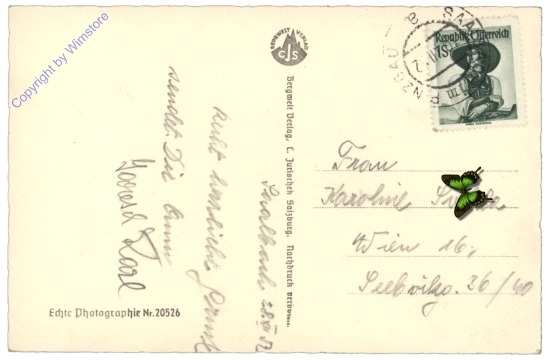 Copyright by Wimstore
BERGWELT VERLAG
CJS
SAALBACH
PINZGAU
Republik Österreich
1S
Saalbach 28. 52
Recht herzliche Grüße
sendet Dir
Karl
Bergwelt Verlag, C. Jurischek Salzburg. Nachdruck verboten.
Frau
Karoline
Wien 16,
26/40
Echte Photographie Nr. 20526